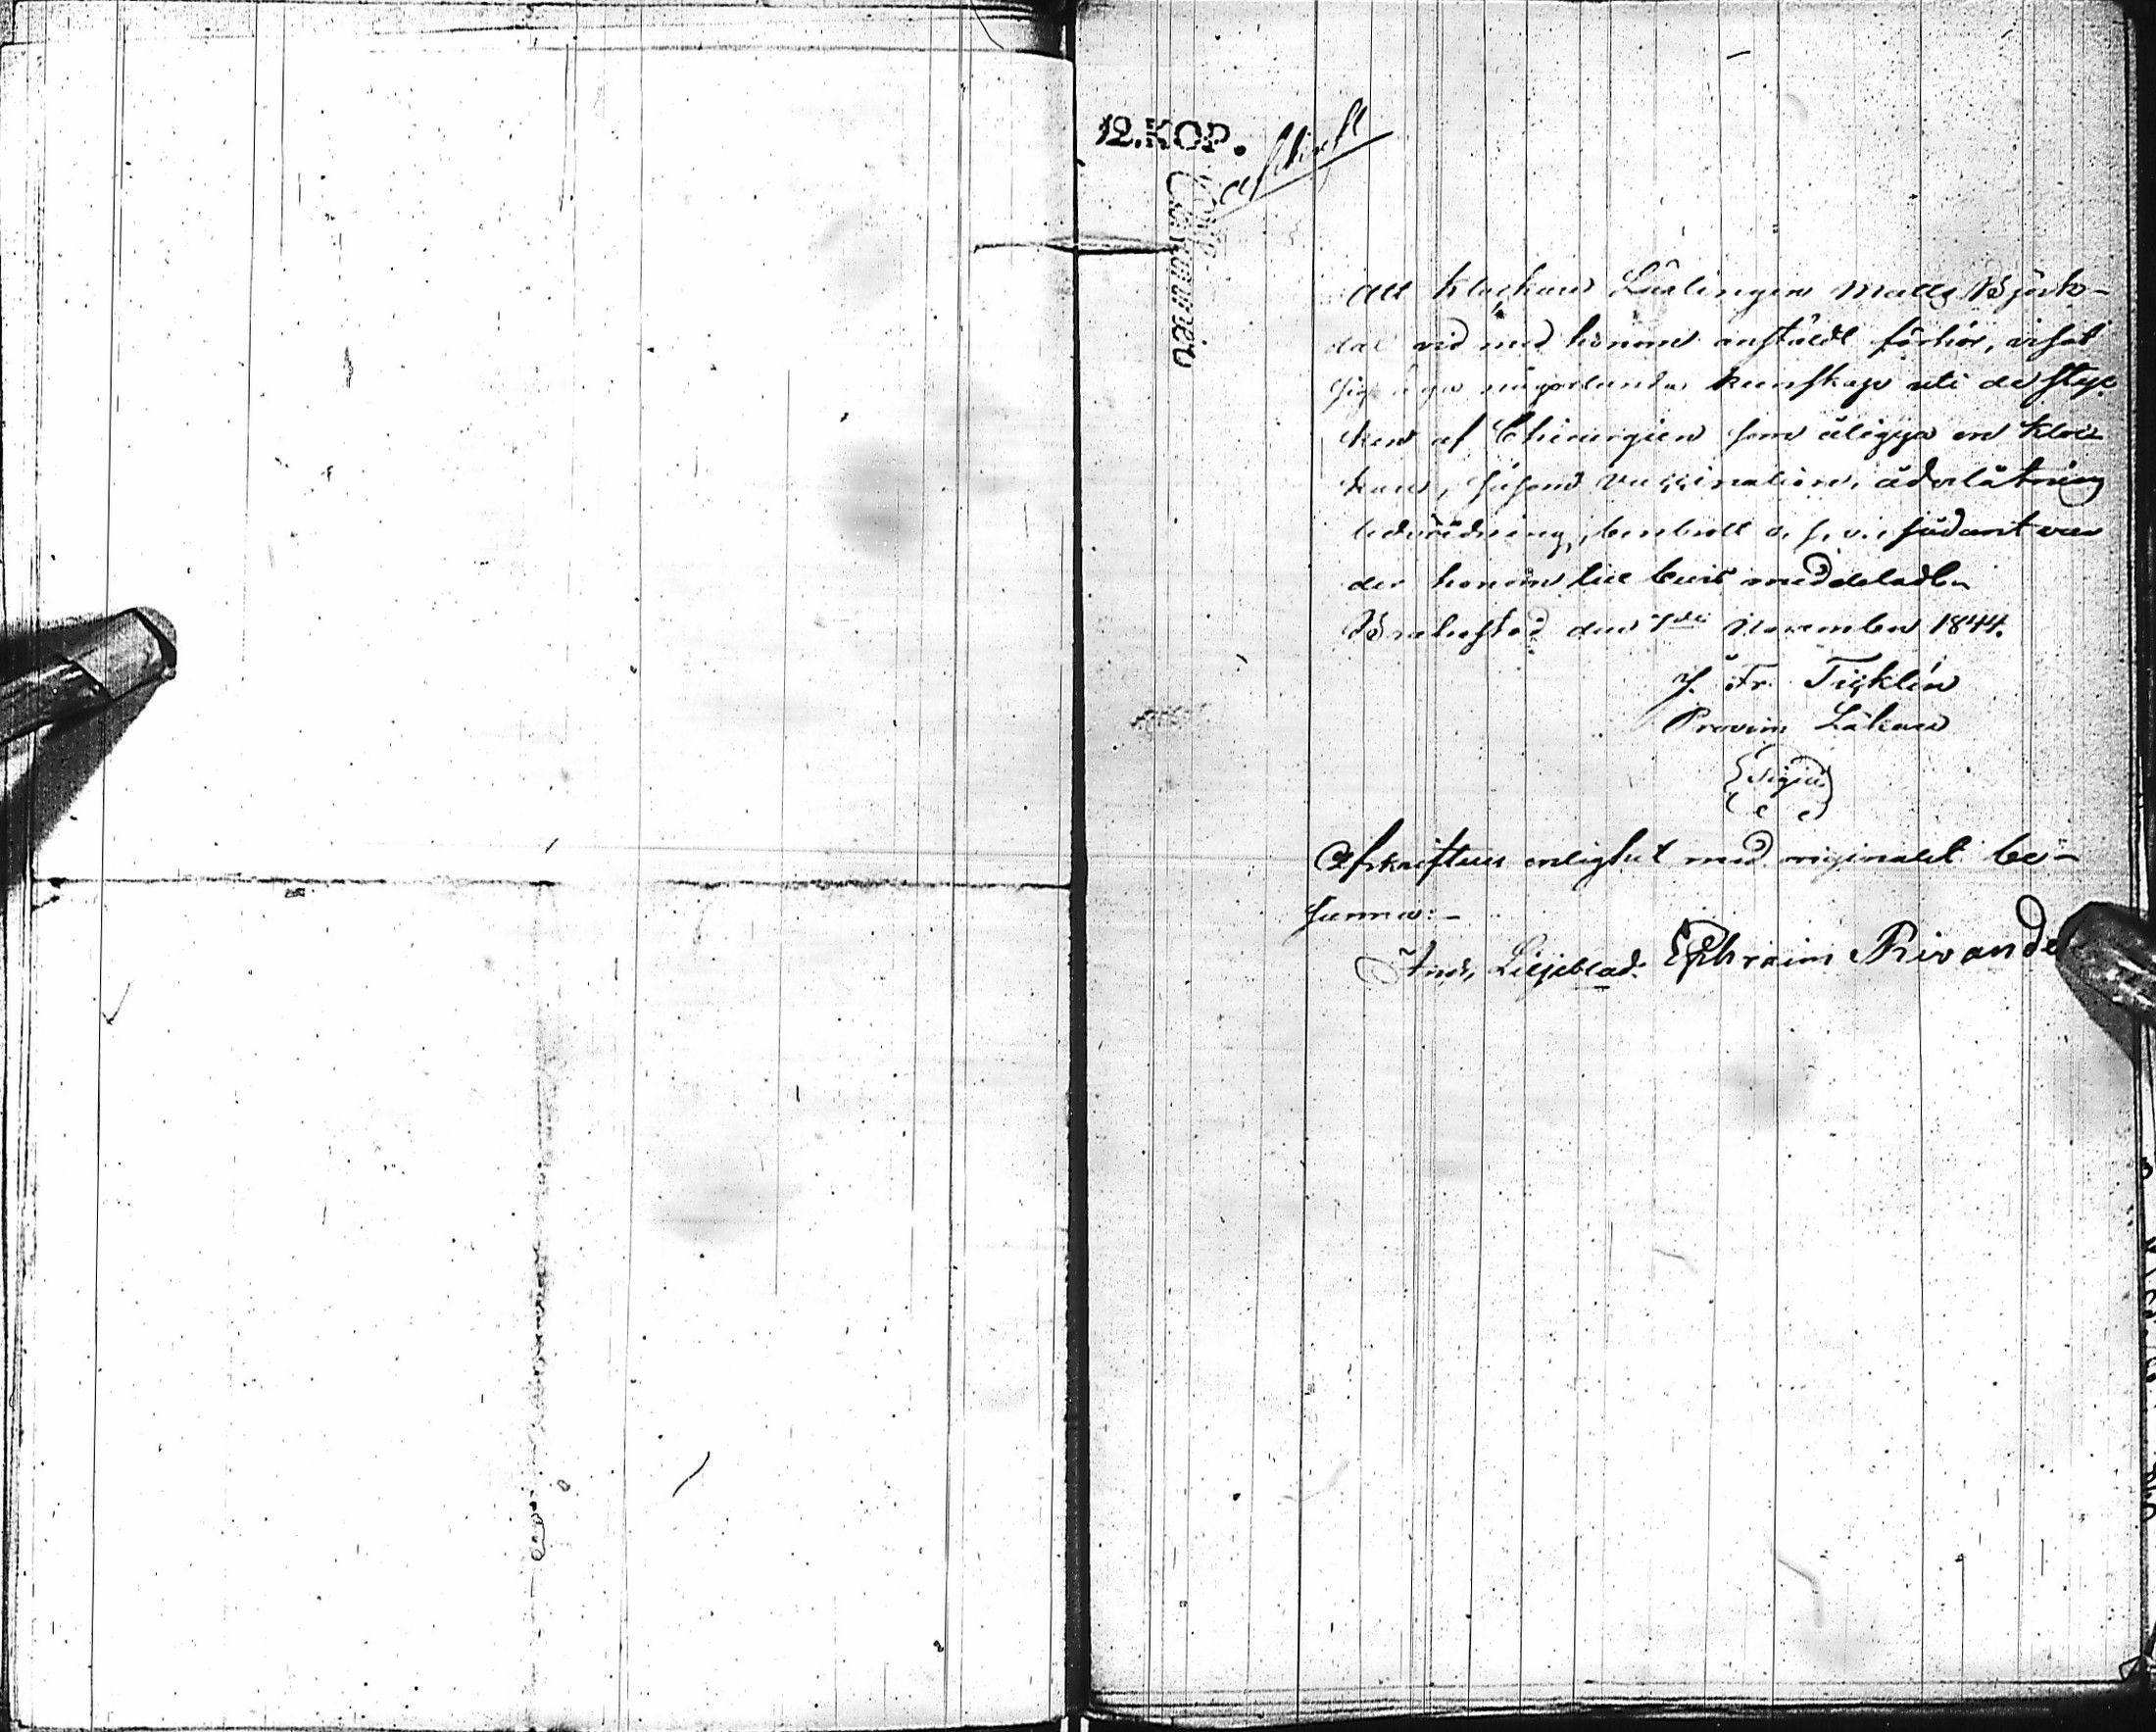 12.KOP.
Afskrift
Att Klockare Lärlingen Matts Björk-
dal vid med honom anstäldt förhör, visat
sig äga någorlunda kunskap uti de styc
ken af Chirurgien som åligga en kloc
kare, såsom Vaccination, åderlåtning
ledvridning, benbrott o. s. v. sådant var
der honom till bevis meddeladt.
Brahestad den 7de November 1844.
J. Fr. Ticklén
Provins Läkare
Sigill
Afskriftens enlighet med originalet be-
känna:-
And. Liljeblad. Ephraim Rivande